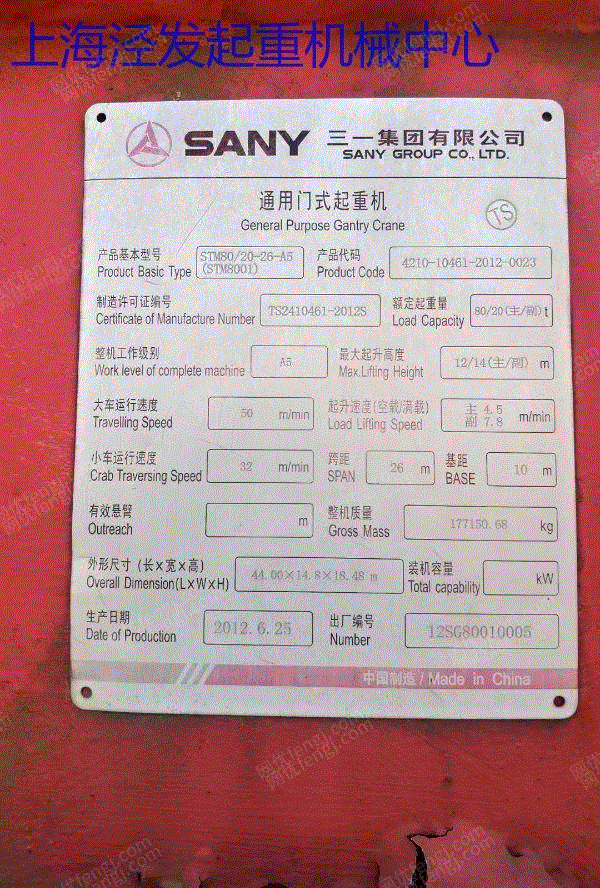 上海泾发起重机械中心
SANY 三一集团有限公司
SANY GROUP CO., LTD.
通用门式起重机
General Purpose Gantry Crane
TS
产品基本型号 STM80/20-26-A5 产品代码 4210-10461-2012-0023
Product Basic Type (STM8001) Product Code
制造许可证编号 TS2410461-2012S 额定起重量 80/20(主/副) t
Certificate of Manufacture Number Load Capacity
整机工作级别 A5 最大起升高度 12/14(主/副) m
Work level of complete machine Max.Lifting Height
大车运行速度 50 m/min 起升速度(空载/满载) 主 4.5 副 7.8 m/min
Travelling Speed Load Lifting Speed
小车运行速度 32 m/min 跨距 26 m 基距 10 m
Crab Traversing Speed SPAN BASE
有效悬臂 m 整机质量 177150.68 kg
Outreach Gross Mass
外形尺寸 (长×宽×高) 44.00×14.8×18.48 m 装机容量 kW
Overall Dimension(L×W×H) Total capability
生产日期 2012.6.25 出厂编号 12SG80010005
Date of Production Number
中国制造 / Made in China